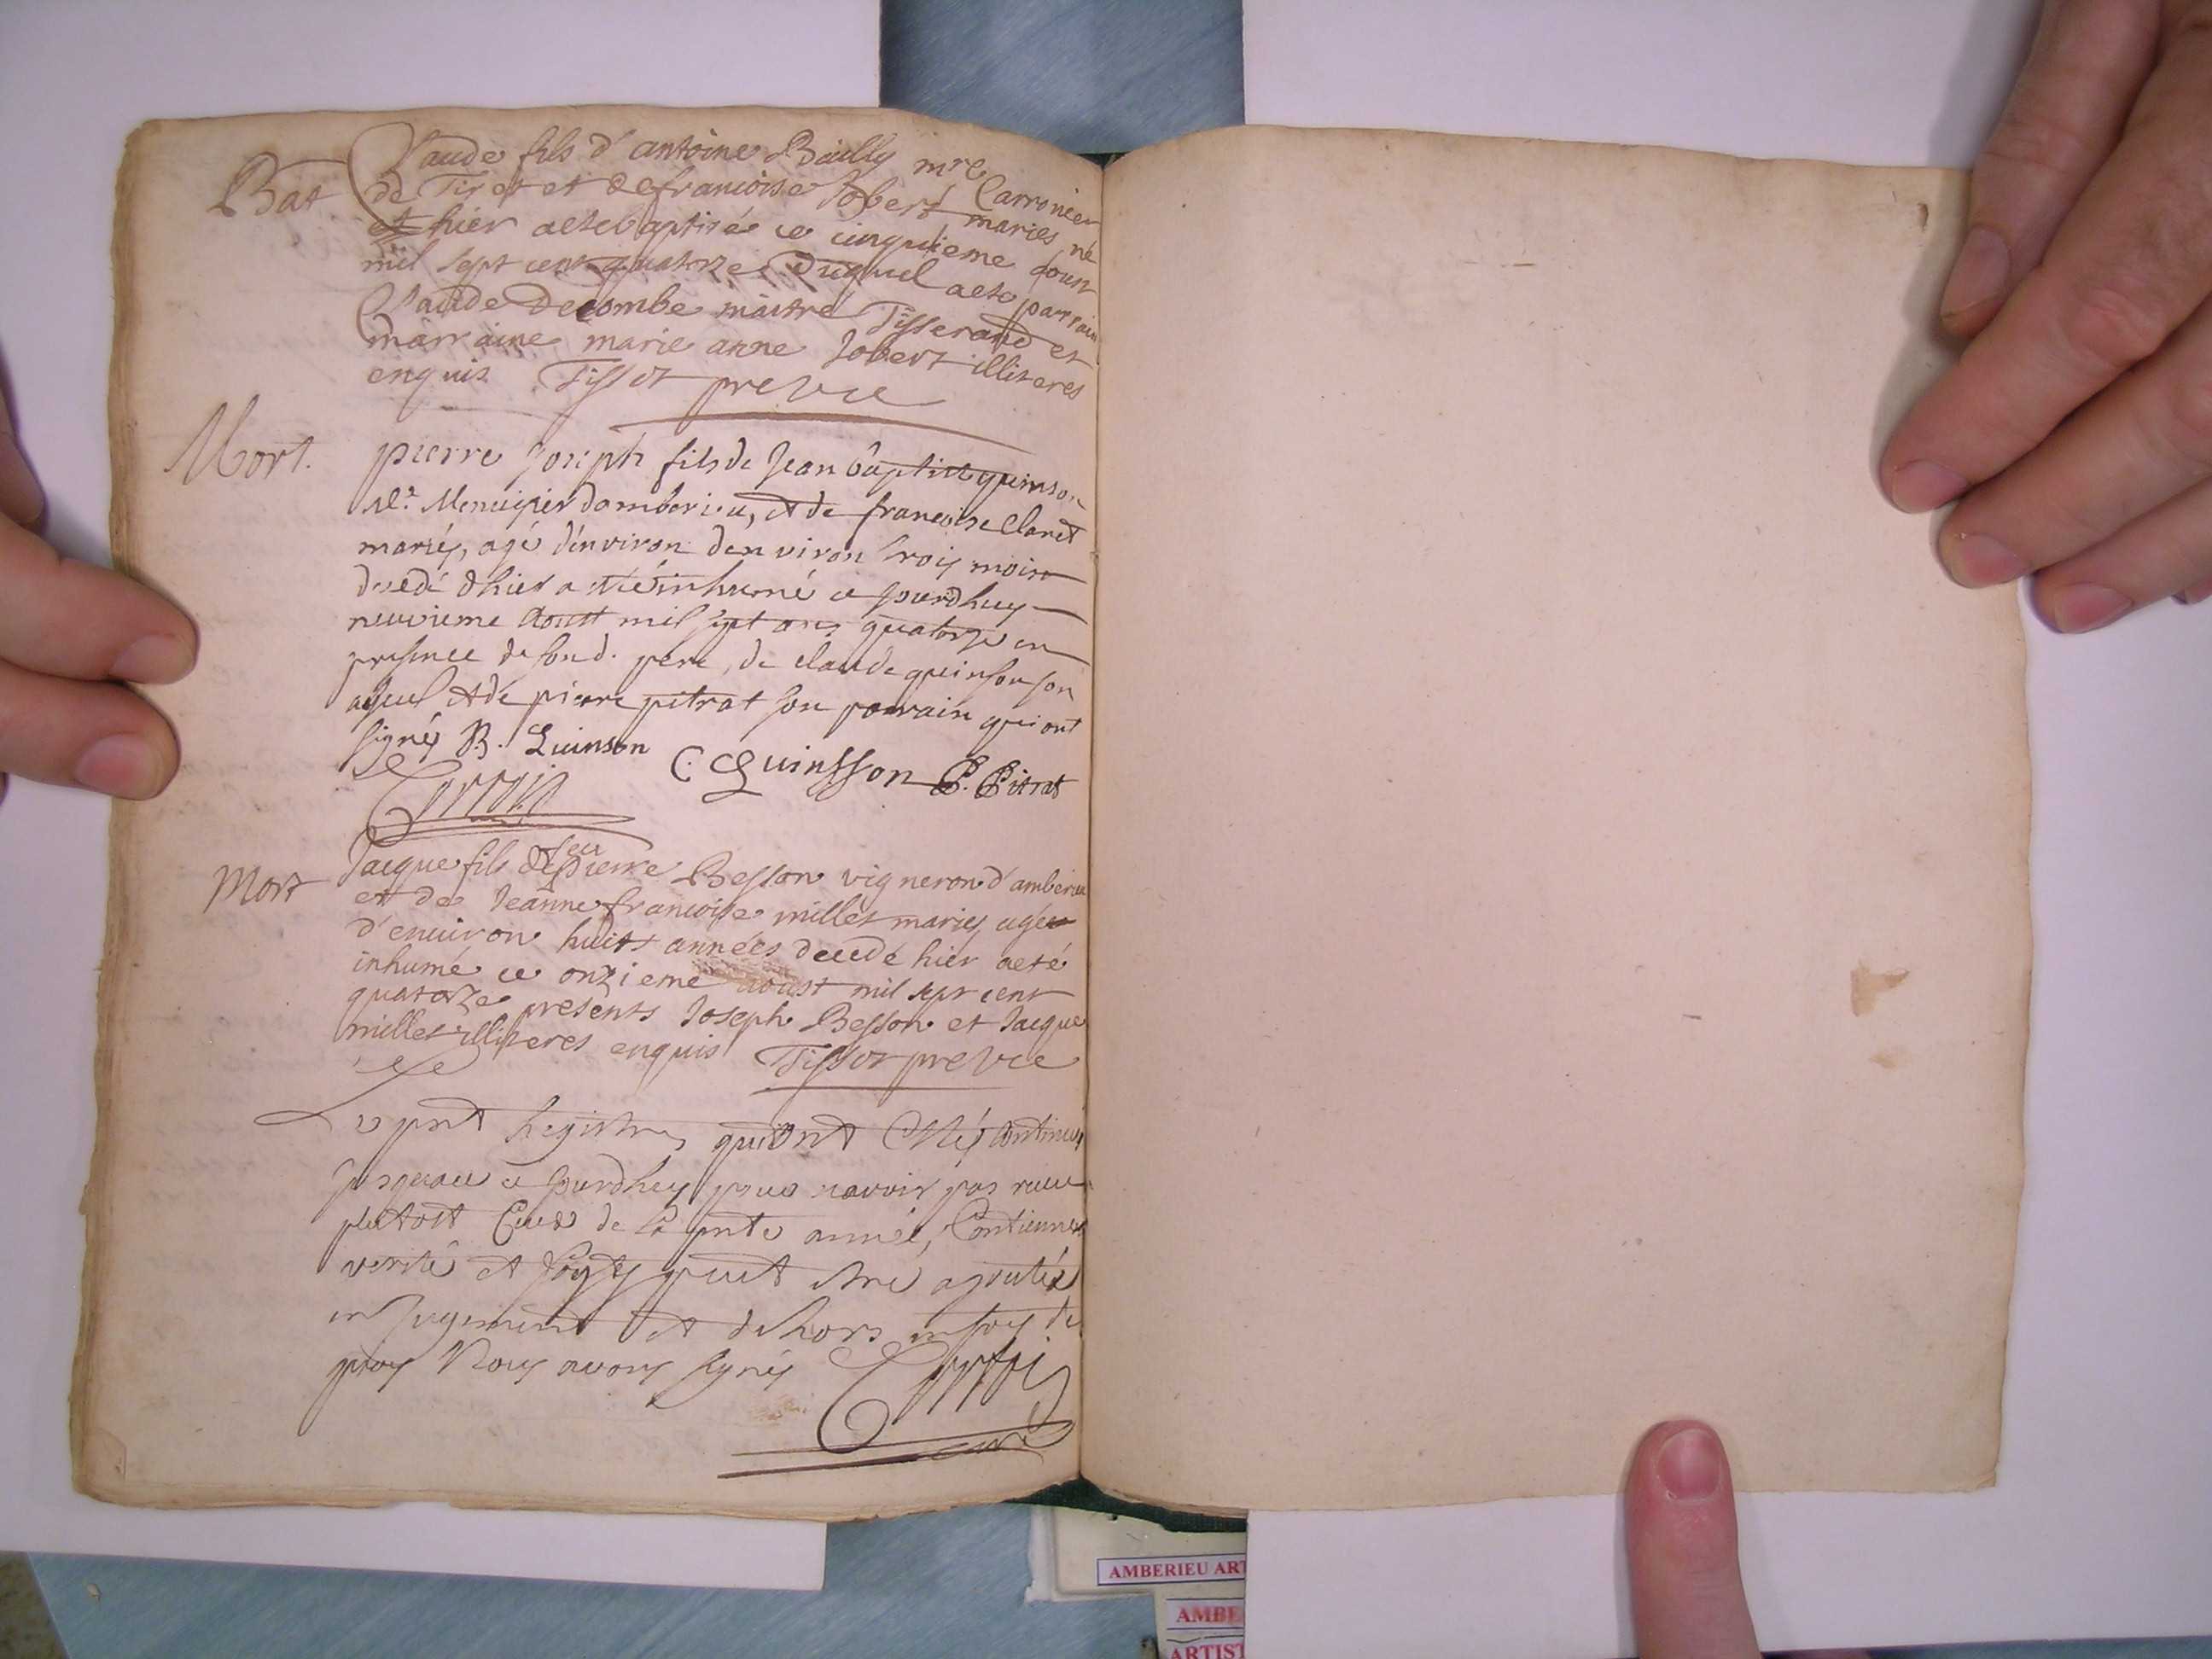 Bat
Claude fils d'antoine Bailly mre Carronier
de Tiret et de francoise Jobert maries né
hier aete baptisée ce cinquieme doust
mil sept cent quatorze Duquel aete parrain
Claude Decombe maitre Tisserand et
marraine marie anne Jobert illiteres
enquis Tissot pre vic
Mort.
pierre Joseph fils de Jean baptiste quinson
Me. Menuisier damberieu, et de francoise Claret
mariés, agé d'environ denviron trois mois
decedé dhier a eté inhumé ce jourdhuy
neuvieme Aoust mil sept cens quatorze en
presence de sond. pere, de claude quinson son
ayeul et de pierre pitrat son parrain qui ont
signés B. Quinson C: Quinsson P. Pitrat
Mort
Jacque fils de feu pierre Besson vigneron d'amberieu
et de Jeanne francoise millet maries agée
d'enuiron huits années decede hier aeté
inhumé ce onzieme aoust mil sept cent
quatorze presents Joseph Besson et Jacque
millet illiteres enquis Tissot pre vic
Le pnt Registre qui ont Estés Continués
jusques a ce jourdhuy pour navoir pas
plutost Ceux de la pnte année, Contiennent
verité et foy y peut etre ajoutée
en Jugement et dehors en foy de
quoy Nous avons Signés
curé
AMBERIEU ART
AMBE
ARTIST